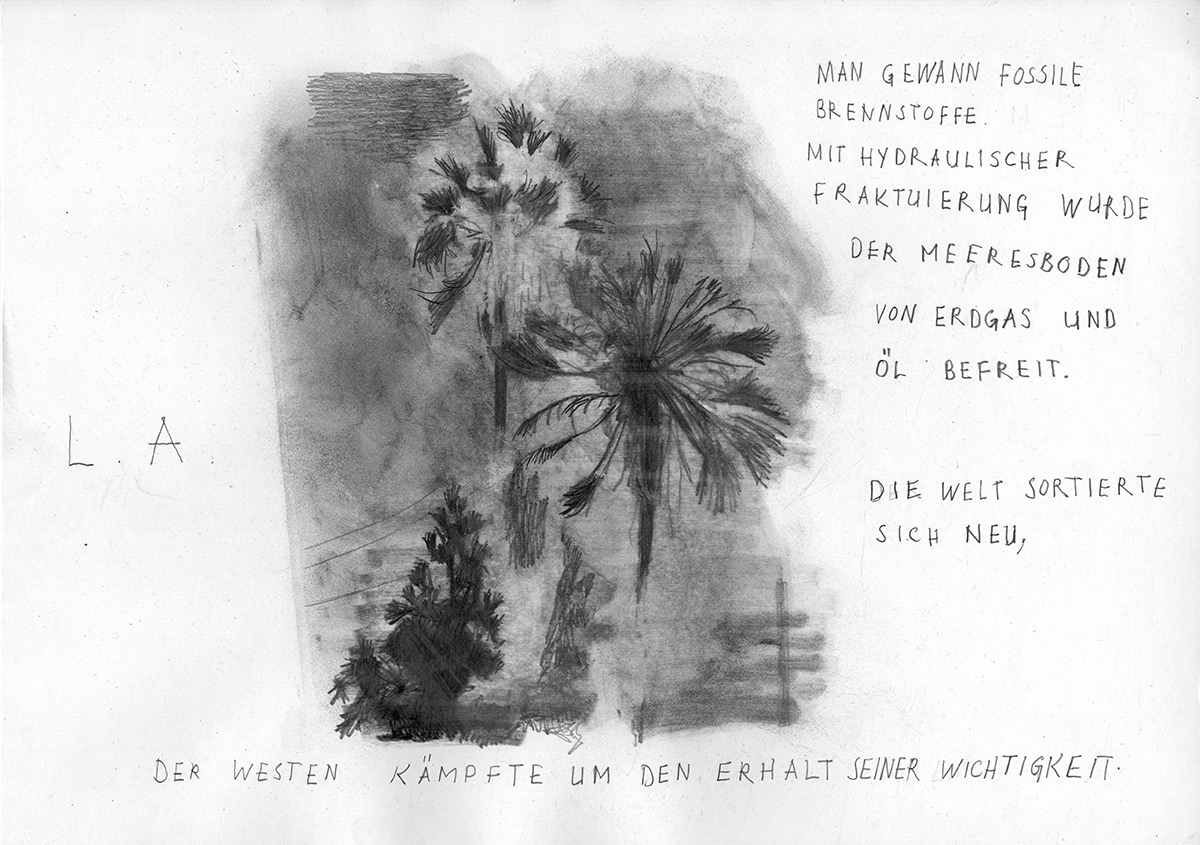 MAN GEWANN FOSSILE
BRENNSTOFFE.
MIT HYDRAULISCHER
FRAKTUIERUNG WURDE
DER MEERESBODEN
VON ERDGAS UND
ÖL BEFREIT.
L.A.
DIE WELT SORTIERTE
SICH NEU,
DER WESTEN KÄMPFTE UM DEN ERHALT SEINER WICHTIGKEIT.